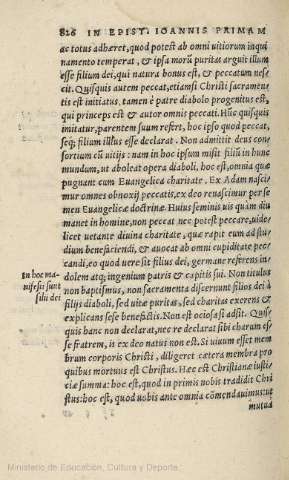 826 IN EPIST. IOANNIS PRIMAM
ac totus adhæret, quod potest ab omni uitiorum inqui
namento temperat, & ipsa morũ puritas arguit illum
esse filium dei, qui natura bonus est, & peccatum nesc
cit. Quisquis autem peccat, etiamsi Christi sacramen
tis est initiatus, tamen è patre diabolo progenitus est,
qui princeps est & autor omnis peccati. Hũc quisquis
imitatur, parentem suum refert, hoc ipso quod peccat,
seq; filium illius esse declarat. Non admittit deus con
sortium cũ uitijs: nam in hoc ipsum misit filiũ in hunc
mundum, ut aboleat opera diaboli, hoc est, omnia quæ
pugnant cum Euangelica charitate. Ex Adam nasci
mur omnes obnoxij peccatis, ex deo renascimur per se
men Euangelicæ doctrinæ. Huius seminis uis quàm diu
manet in homine, non peccat nec potest peccare, uide
licet uetante diuina charitate, quæ rapit eum ad stu
dium benefaciendi, & auocat ab omni cupiditate pec
candi, eo quod uere sit filius dei, germane referens in
In hoc ma
nifesti sunt
filij dei
dolem atq; ingenium patris & capitis sui. Non titulus
non baptismus, non sacramenta discernunt filios dei à
filijs diaboli, sed uitæ puritas, sed charitas exerens &
explicans sese benefactis. Non est ociosa si adsit. Quis
quis hanc non declarat, nec re declarat sibi charum es
se fratrem, is ex deo natus non est. Si uiuum esset mem
brum corporis Christi, diligeret cætera membra pro
quibus mortuus est Christus. Hæc est Christianæ iusti
ciæ summa: hoc est, quod in primis uobis tradidit Chri
stus: hoc est, quod uobis ante omnia cõmendauimus: ut
mutua
Ministerio de Educación, Cultura y Deporte.